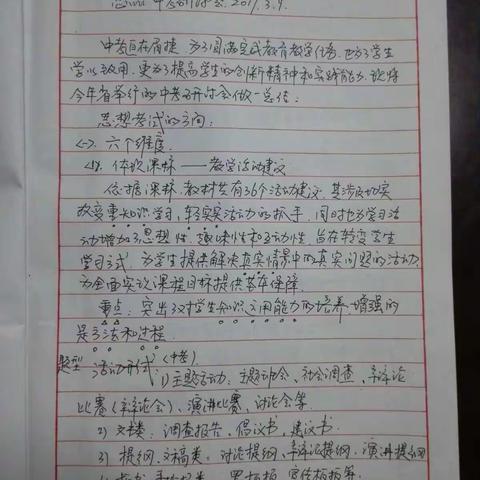 中考研讨会. 2017.3.9.
中考迫在眉捷,为了圆满完成教育教学任务,也为了学生
学以致用.更为了提高学生的创新精神和实践能力,现将
今年省举行的中考研讨会做一总结:
思想考试的方向:
<一>. 六个维度.
<1>. 体现课标——教学活动建议
依据课标 教材共有36个活动建议.其涉及切实
改变重知识学习,轻实实活动的抓手,同时也为学习活
动增加了思想性、趣味性和互动性,旨在转变学生
学习方式.为学生提供解决真实情景中的真实问题的活动,
为全面实现课程目标提供基本保障.
重点:突出了对学生知识运用能力的培养.增强的
是方法和过程.
题型 活动形式:(中考)
1)主题活动:主题班会、社会调查、辩论
比赛(辩论会)、演讲比赛、讨论会等.
2) 文书类:调查报告、倡议书、建议书.
3) 提纲、文稿类:讨论提纲、辩论提纲、演讲提纲
黑板报、宣传板报等.